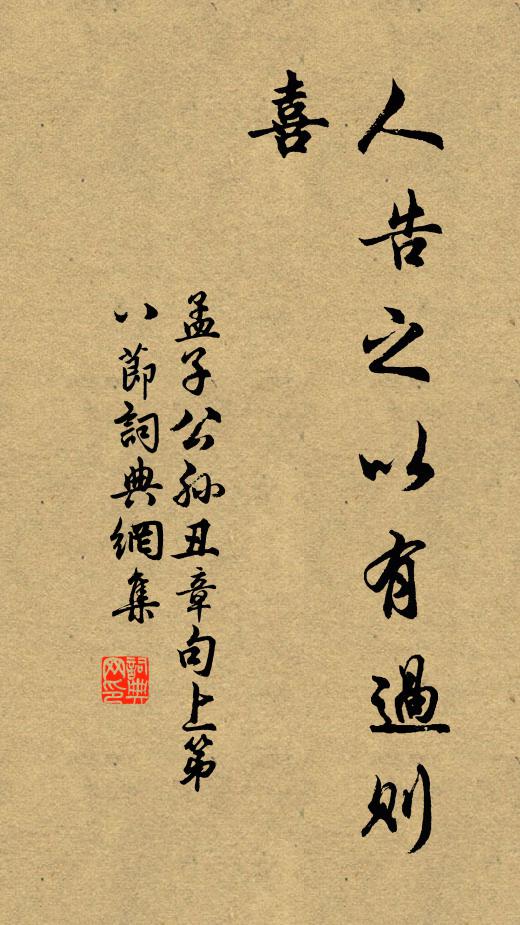 人告之以有過則
喜
孟子公孫丑章句上第
八節詞典網集
詞典
网印